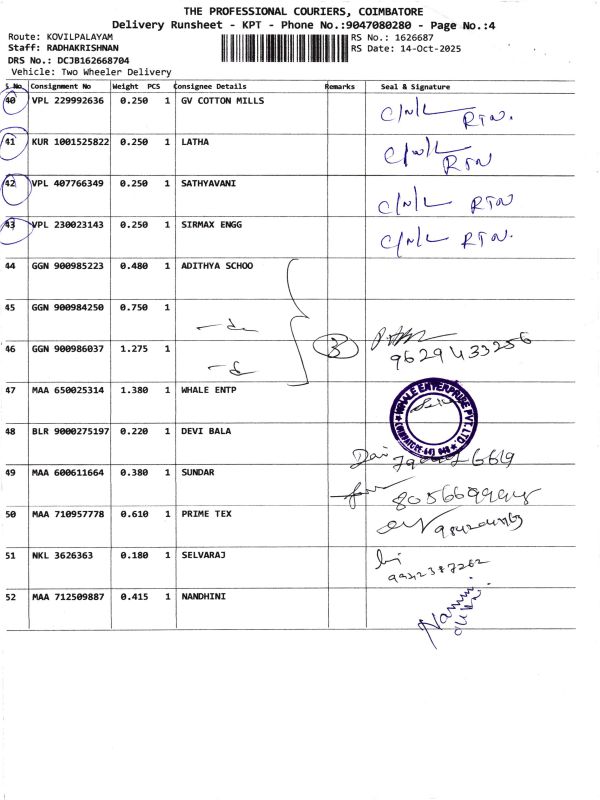 THE PROFESSIONAL COURIERS, COIMBATORE
Delivery Runsheet - KPT - Phone No.:9047080280 - Page No.:4
Route: KOVILPALAYAM
RS No.: 1626687
Staff: RADHAKRISHNAN
RS Date: 14-Oct-2025
DRS No.: DCJB162668704
Vehicle: Two Wheeler Delivery
S No Consignment No Weight PCS Consignee Details Remarks Seal & Signature
40 VPL 229992636 0.250 1 GV COTTON MILLS C/N/L RTN.
41 KUR 1001525822 0.250 1 LATHA C/N/L RTN
42 VPL 407766349 0.250 1 SATHYAVANI C/N/L RTN
43 VPL 230023143 0.250 1 SIRMAX ENGG C/N/L RTN.
44 GGN 900985223 0.480 1 ADITHYA SCHOO
45 GGN 900984250 0.750 1 -do-
46 GGN 900986037 1.275 1 -do- 3 9629433256
47 MAA 650025314 1.380 1 WHALE ENTP WHALE ENTERPRISE PVT. LTD.
48 BLR 9000275197 0.220 1 DEVI BALA
49 MAA 600611664 0.380 1 SUNDAR
50 MAA 710957778 0.610 1 PRIME TEX
51 NKL 3626363 0.180 1 SELVARAJ
52 MAA 712509887 0.415 1 NANDHINI